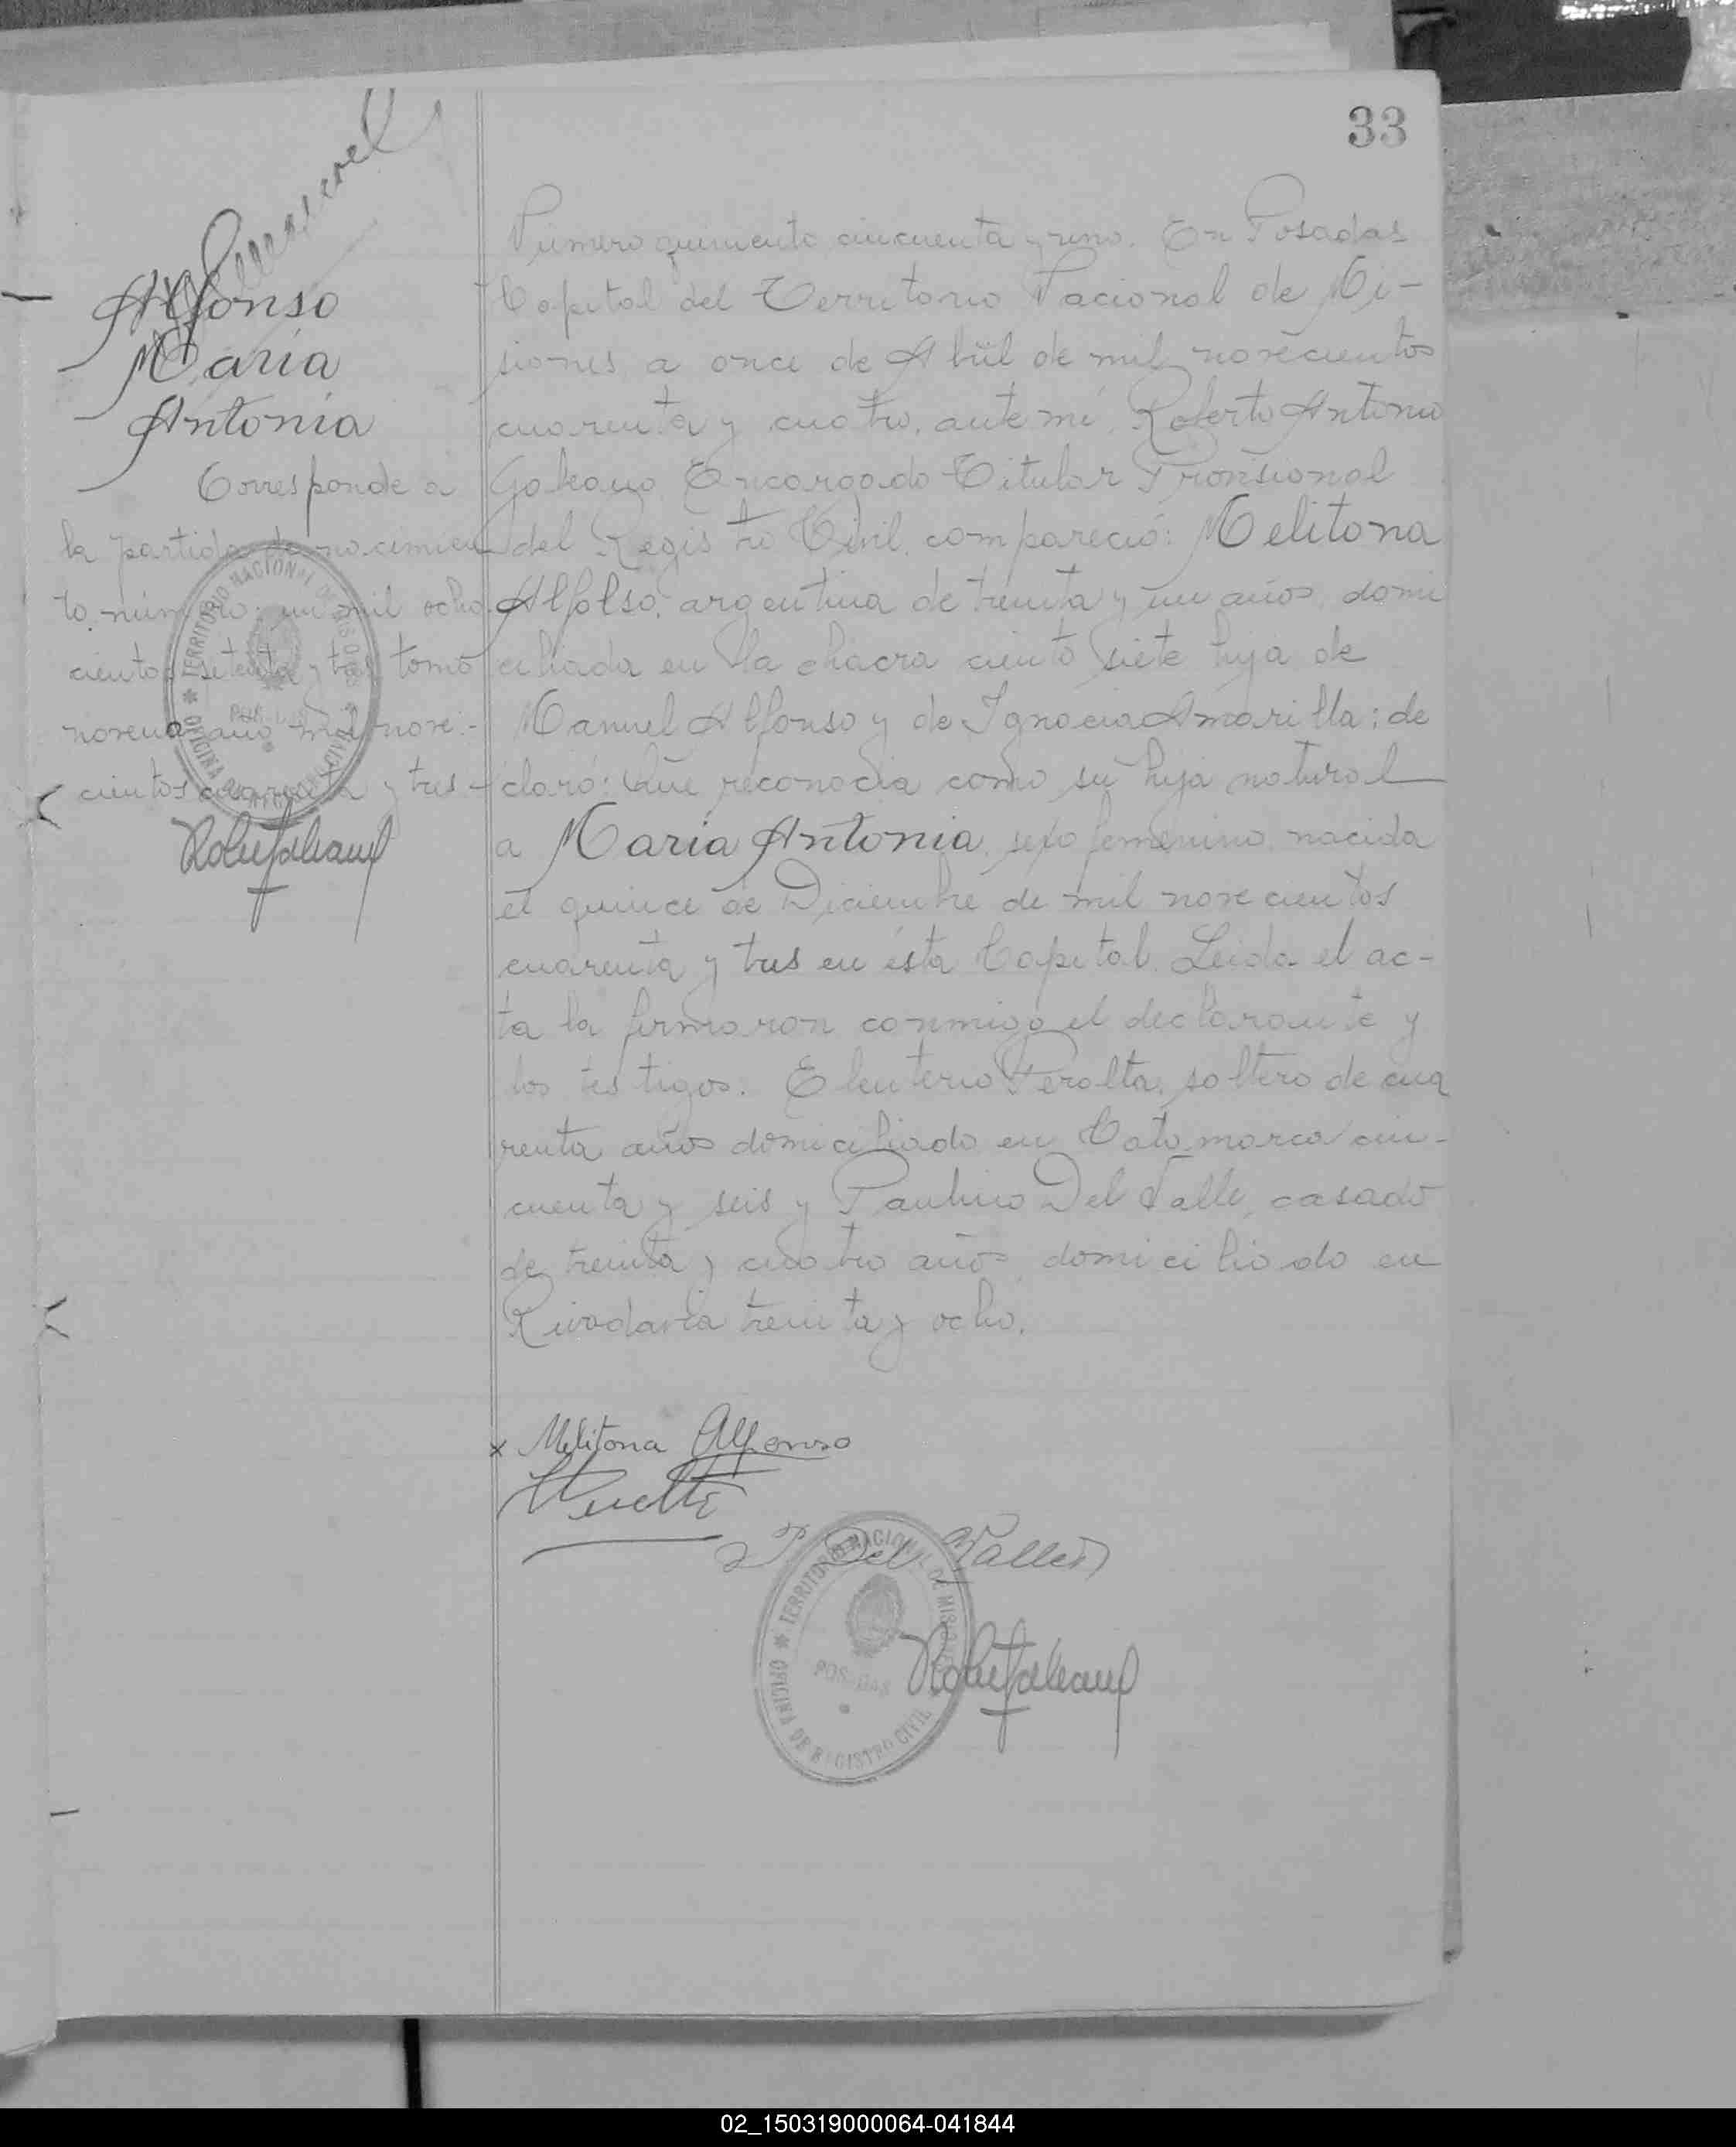 33
Alfonso
María
Antonia
Corresponde a
la partida de nacimien
to número: un mil ocho
cientos setenta y tres tomo
noveno año mil nove-
cientos cuarenta y tres-
Número quiniento cincuenta y uno. En Posadas
Capital del Territorio Nacional de Mi-
siones a once de Abril de mil novecientos
cuarenta y cuatro, ante mí, Roberto Antonio
Galeano Encargado Titular Provisional
del Registro Civil, compareció: Melitona
Alfolso, argentina de treinta y un años, domi
ciliada en la chacra ciento siete hija de
Manuel Alfonso y de Ignacia Amarilla; de
claró: Que reconocía como su hija natural
a María Antonia, sexo femenino, nacida
el quince de Diciembre de mil novecientos
cuarenta y tres en ésta Capital. Leida el ac-
ta la firmaron conmigo el declarante y
los testigos: Eleuterio Peralta, soltero de cua
renta años domiciliado en Catamarca cin-
cuenta y seis y Paulino Del Valle, casado
de treinta y cuatro años, domiciliado en
Rivadavia treinta y ocho.
x Melitona Alfonso
P. Del Valle
TERRITORIO NACIONAL DE MISIONES
POSADAS
OFICINA DE REGISTRO CIVIL
TERRITORIO NACIONAL DE MISIONES
POSADAS
OFICINA DE REGISTRO CIVIL
02_150319000064-041844